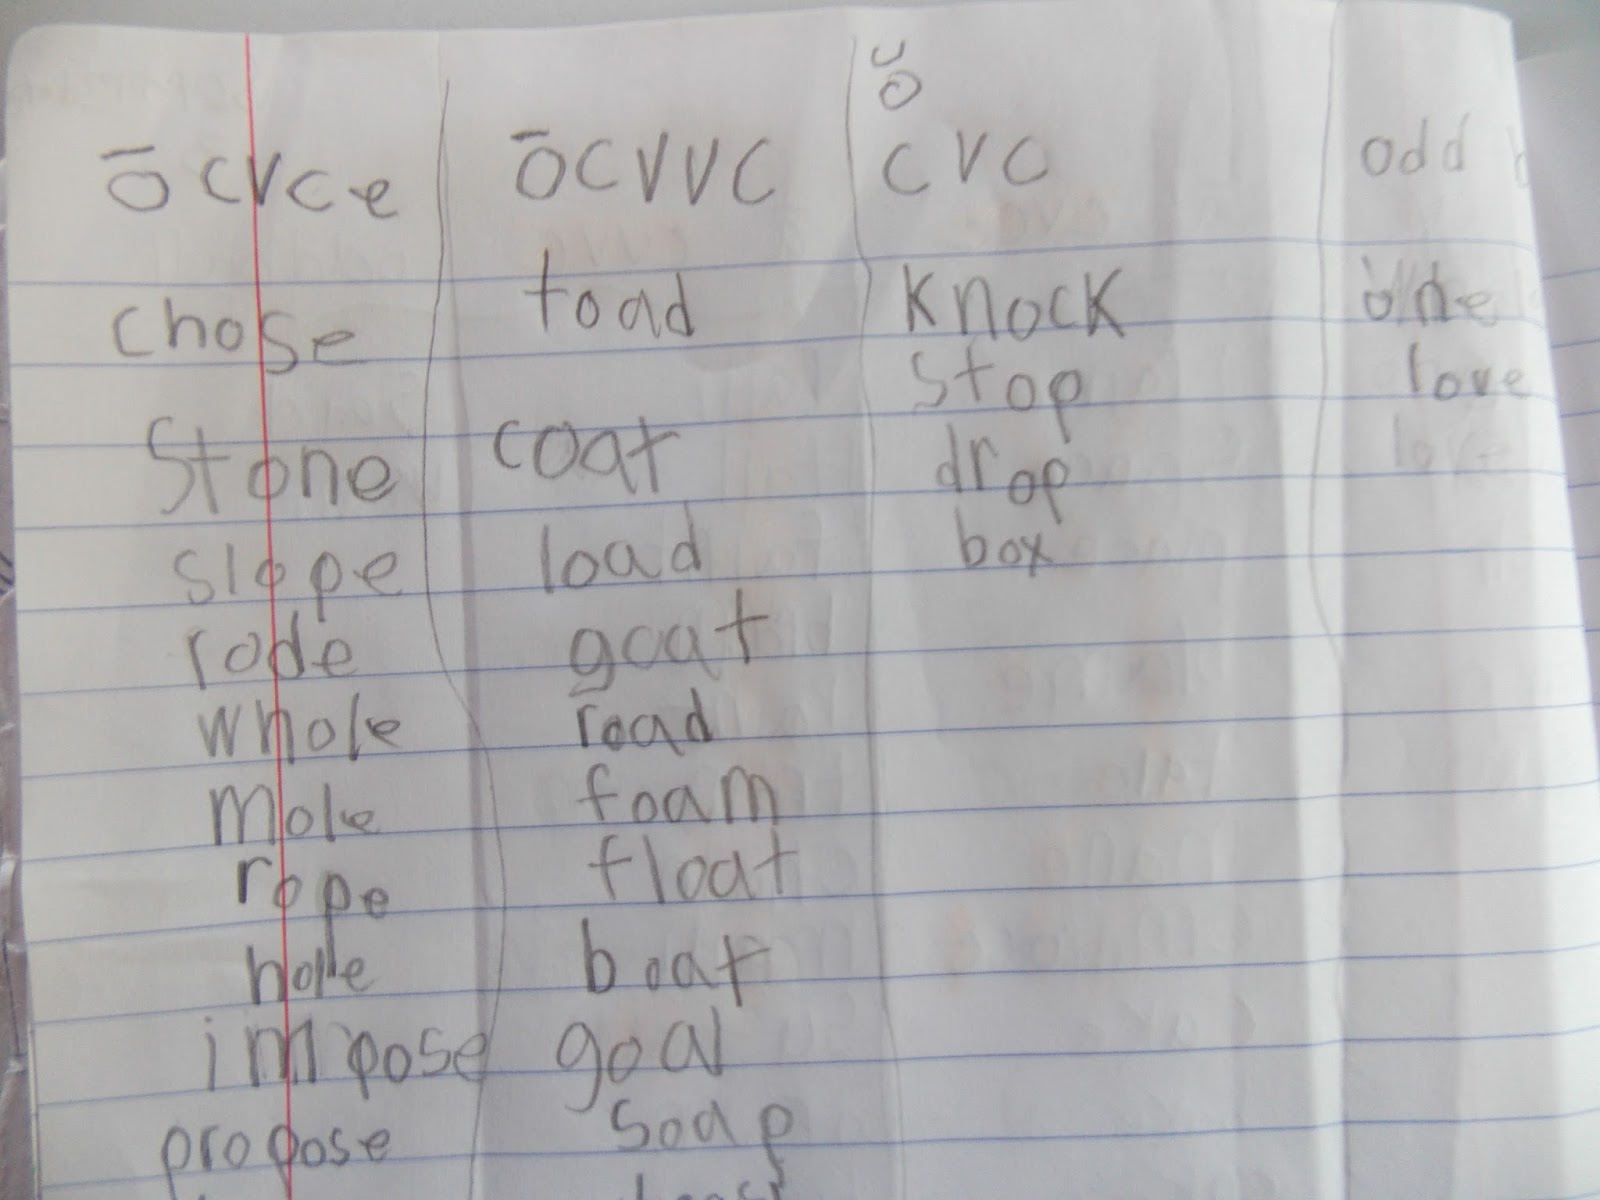 ō cvce
chose
stone
slope
rode
whole
mole
rope
hole
impose
propose
ō CVVC
toad
coat
load
goat
road
foam
float
boat
goal
soap
ŏ
CVC
knock
stop
drop
box
odd
one
love
love